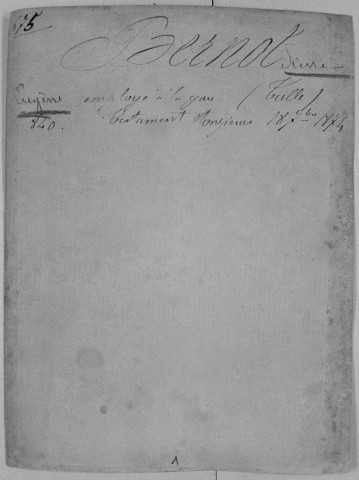 675
Bernot Pierre
Eugène employé à la gare (Tulle)
840. Testament 18 7bre 1874